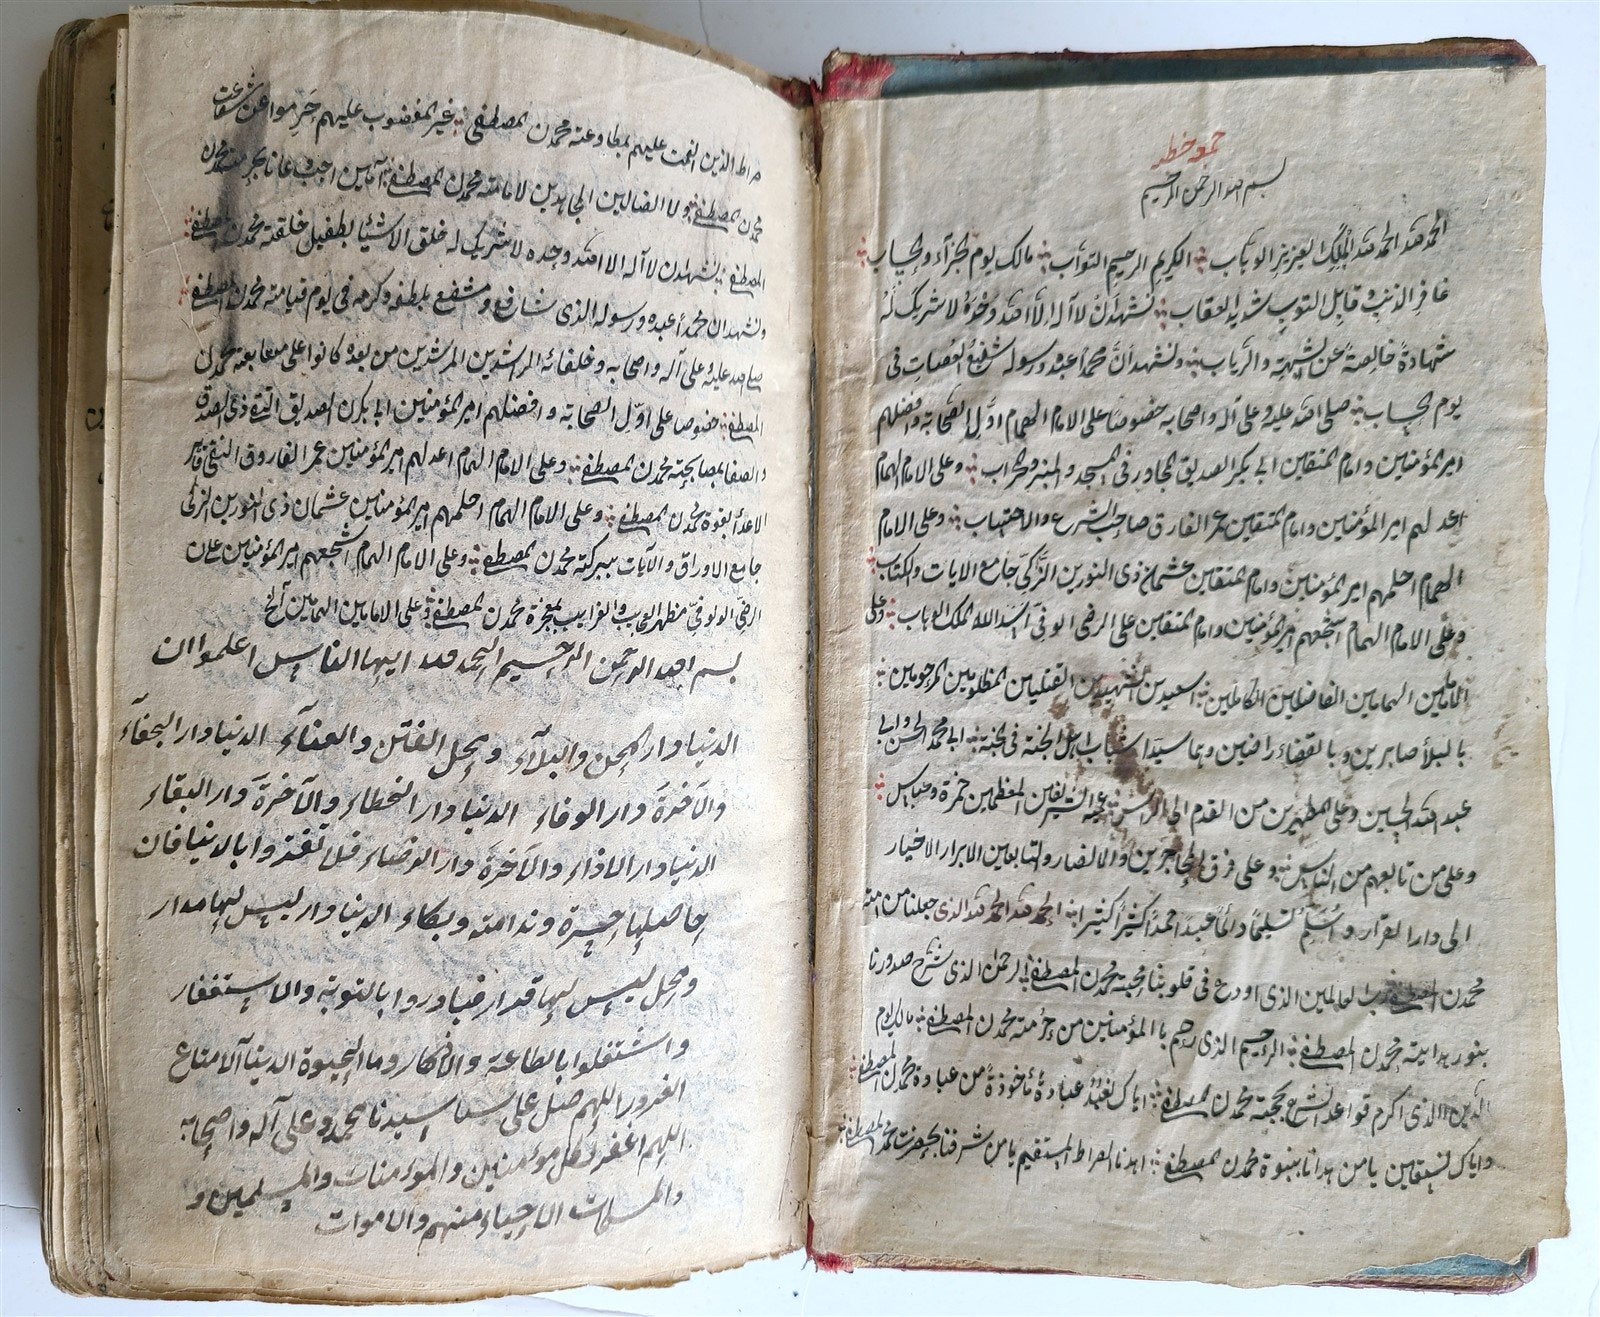 بسم الله الرحمن الرحيم
الحمد لله الحمد لله الملك العزيز الوهاب الكريم الرحيم التواب مالك يوم الجزآء والحساب
غافر الذنب وقابل التوب شديد العقاب نشهد ان لا اله الا الله وحده لا شريك له
شهادة خالصة عن الشبهة والرياب ونشهد ان محمدا عبده ورسوله شفيع العصات فى
يوم الحساب صلى الله عليه وعلى آله واصحابه خصوصا على الامام الهمام اول الصحابة وافضلهم
امير المؤمنين وامام المتقين ابي بكر الصديق المجاور فى المسجد والمنبر والمحراب وعلى الامام الهمام
اعدلهم امير المؤمنين وامام المتقين عمر الفارق صاحب الشرع والاحتساب وعلى الامام
الهمام احلمهم امير المؤمنين وامام المتقين عثمان ذى النورين الزكى جامع الايات والكتاب
وعلى الامام الهمام اشجعهم امير المؤمنين وامام المتقين على الرضى الوفى اسد الله الملك الوهاب وعلى
الامامين الهمامين الفاضلين الكاملين السعيدين الشهيدين القتيلين المظلومين المرحومين
بالبلأ صابرين وبالقضاء راضين وهما سيدا شباب اهل الجنة فى الجنة ابى محمد الحسن وابى
عبد الله الحسين وعلى المطهرين من القدم الى الراس عميه الشريفين المعظمين حمزة وعباس
وعلى من تابعهم من الناس وعلى فرق المهاجرين والانصار والتابعين الابرار الاخيار
الى دار القرار وسلم تسليما دائما ابدا حمدا كثيرا كثيرا الحمد لله الحمد لله الذى جعلنا من امته
محمدن المصطفى رب العالمين الذى اودع فى قلوبنا محبة محمدن المصطفى الرحمن الذى شرح صدورنا
بنور هداية محمدن المصطفى الرحيم الذى رحم با المؤمنين من حرمته محمدن المصطفى مالك يوم
الدين الذى اكرم قواعد الشرع بحجبة محمدن المصطفى اياك نعبد عبادة مأخوذة من عبادة محمدن المصطفى
واياك نستعين يا من هدانا بنبوة محمدن المصطفى اهدنا الصراط المستقيم يا من شرفنا بحضرت محمدن المصطفى
صراط الذين انعمت عليهم بمطاوعته محمدن المصطفى غير المغضوب عليهم حرموا عن شفاعت
محمدن المصطفى ولا الضالين الجاهدين لامامته محمدن المصطفى آمين اجب دعانا بحرمت محمدن
المصطفى نشهد ان لا آله الا الله وحده لا شريك له خلق الاشيأ بطفيل خلقته محمدن المصطفى
ونشهد ان محمدا عبده ورسوله الذى شافع ومشفع بلطفه وكرمه فى يوم قيامته محمدن المصطفى
صلى الله عليه وعلى آله واصحابه وخلفائه الراشدين المرشدين من بعده كانوا على متابعته محمدن
المصطفى خصوصا على اول الصحابة وافضلهم امير المؤمنين ابى بكرن الصديق التقى ذى الصدق
والصفا بمصاحبته محمدن المصطفى وعلى الامام الهمام اعدلهم امير المؤمنين عمر الفاروق النقى قامر
الاعدأ بقوة محمدن المصطفى وعلى الامام الهمام احلمهم امير المؤمنين عثمان ذى النورين الزكى
جامع الاوراق والآيات ببركته محمدن المصطفى وعلى الامام الهمام اشجعهم امير المؤمنين علي ن
الرضى الوفى مظهر العجايب والغرايب بمعجزة محمدن المصطفى وعلى الامامين الهمامين الخ
بسم الله الرحمن الرحيم الحمد لله ايها الناس اعلموا ان
الدنيا دار المحن والبلآء ومحل الفتن والعنآء الدنيا دار الجفآء
والآخرة دار الوفاء الدنيا دار الخطاء والآخرة دار البقاء
الدنيا دار الاذاء والآخرة دار الرضاء فلا تغتروا بالدنيا فان
حاصلها حسرة وندامته وبكاء الدنيا دار ليس لها مدار
ومحل ليس لها قرار فبادروا بالتوبة والاستغفار
واشتغلوا بالطاعة والاذكار وما الحيوة الدنيا الا متاع
الغرور اللهم صل على سيدنا محمد وعلى آله واصحابه
اللهم اغفر لكل مؤمنين والمؤمنات والمسلمين و
والمسلمات الاحياء منهم والاموات